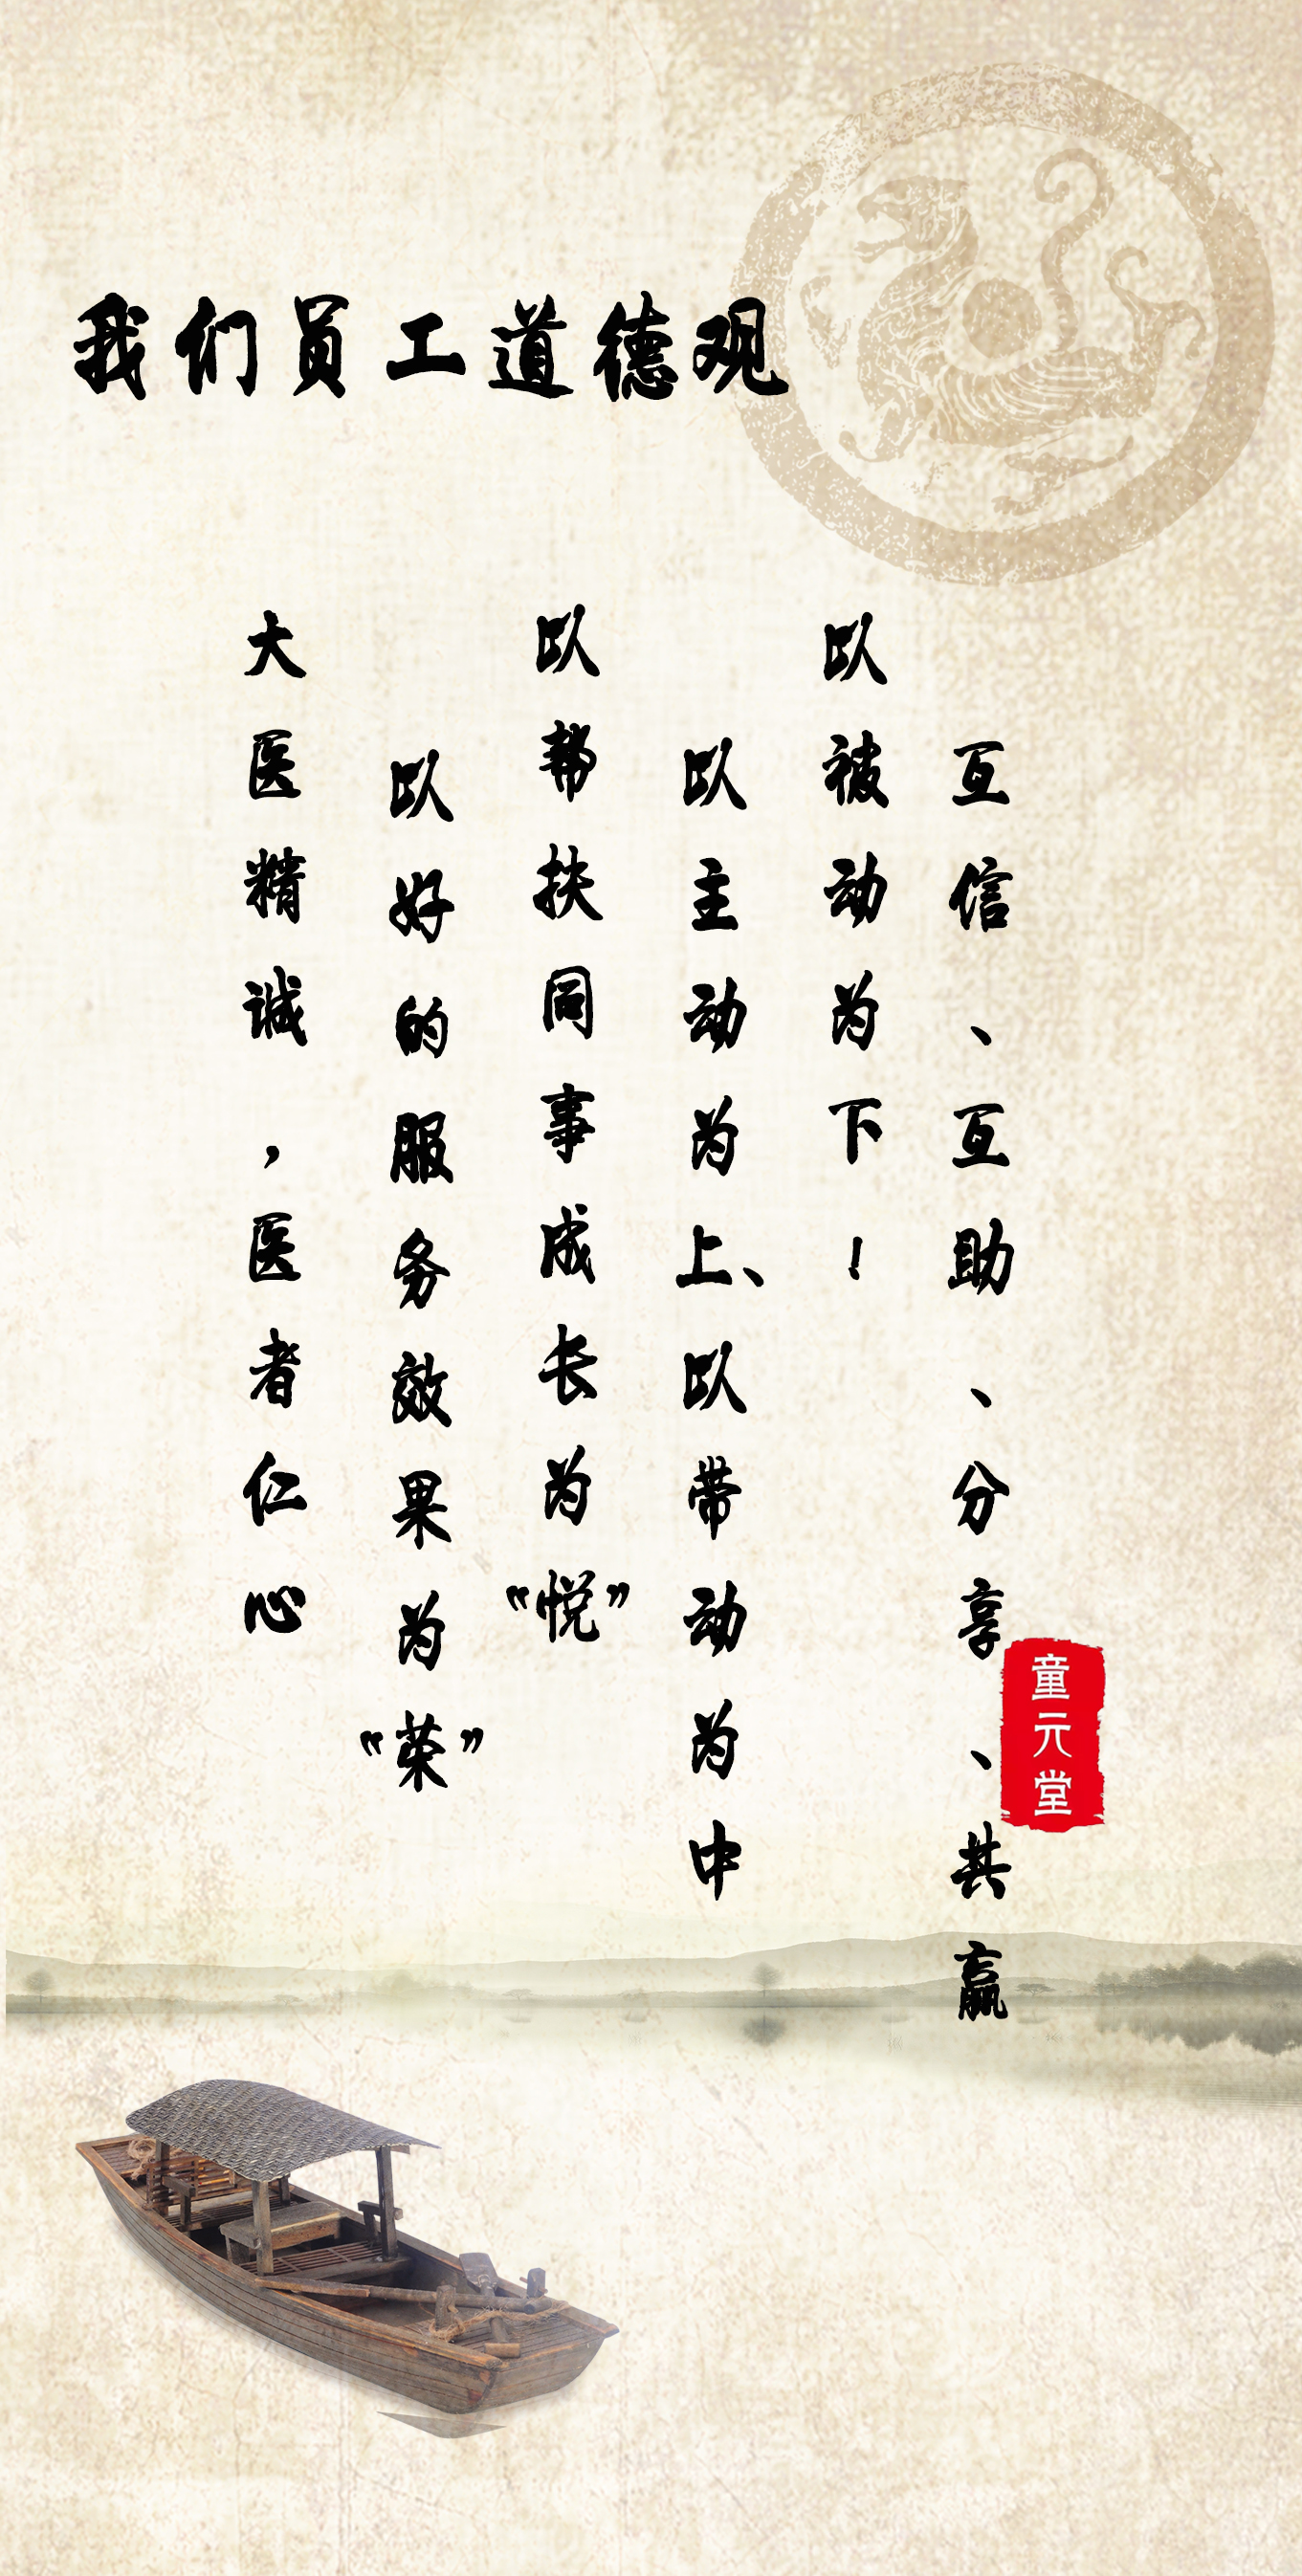 我们员工道德观
大医精诚，医者仁心
以好的服务效果为“荣”
以帮扶同事成长为“悦”
以主动为上、以带动为中
以被动为下！
互信、互助、分享、共赢
童元堂